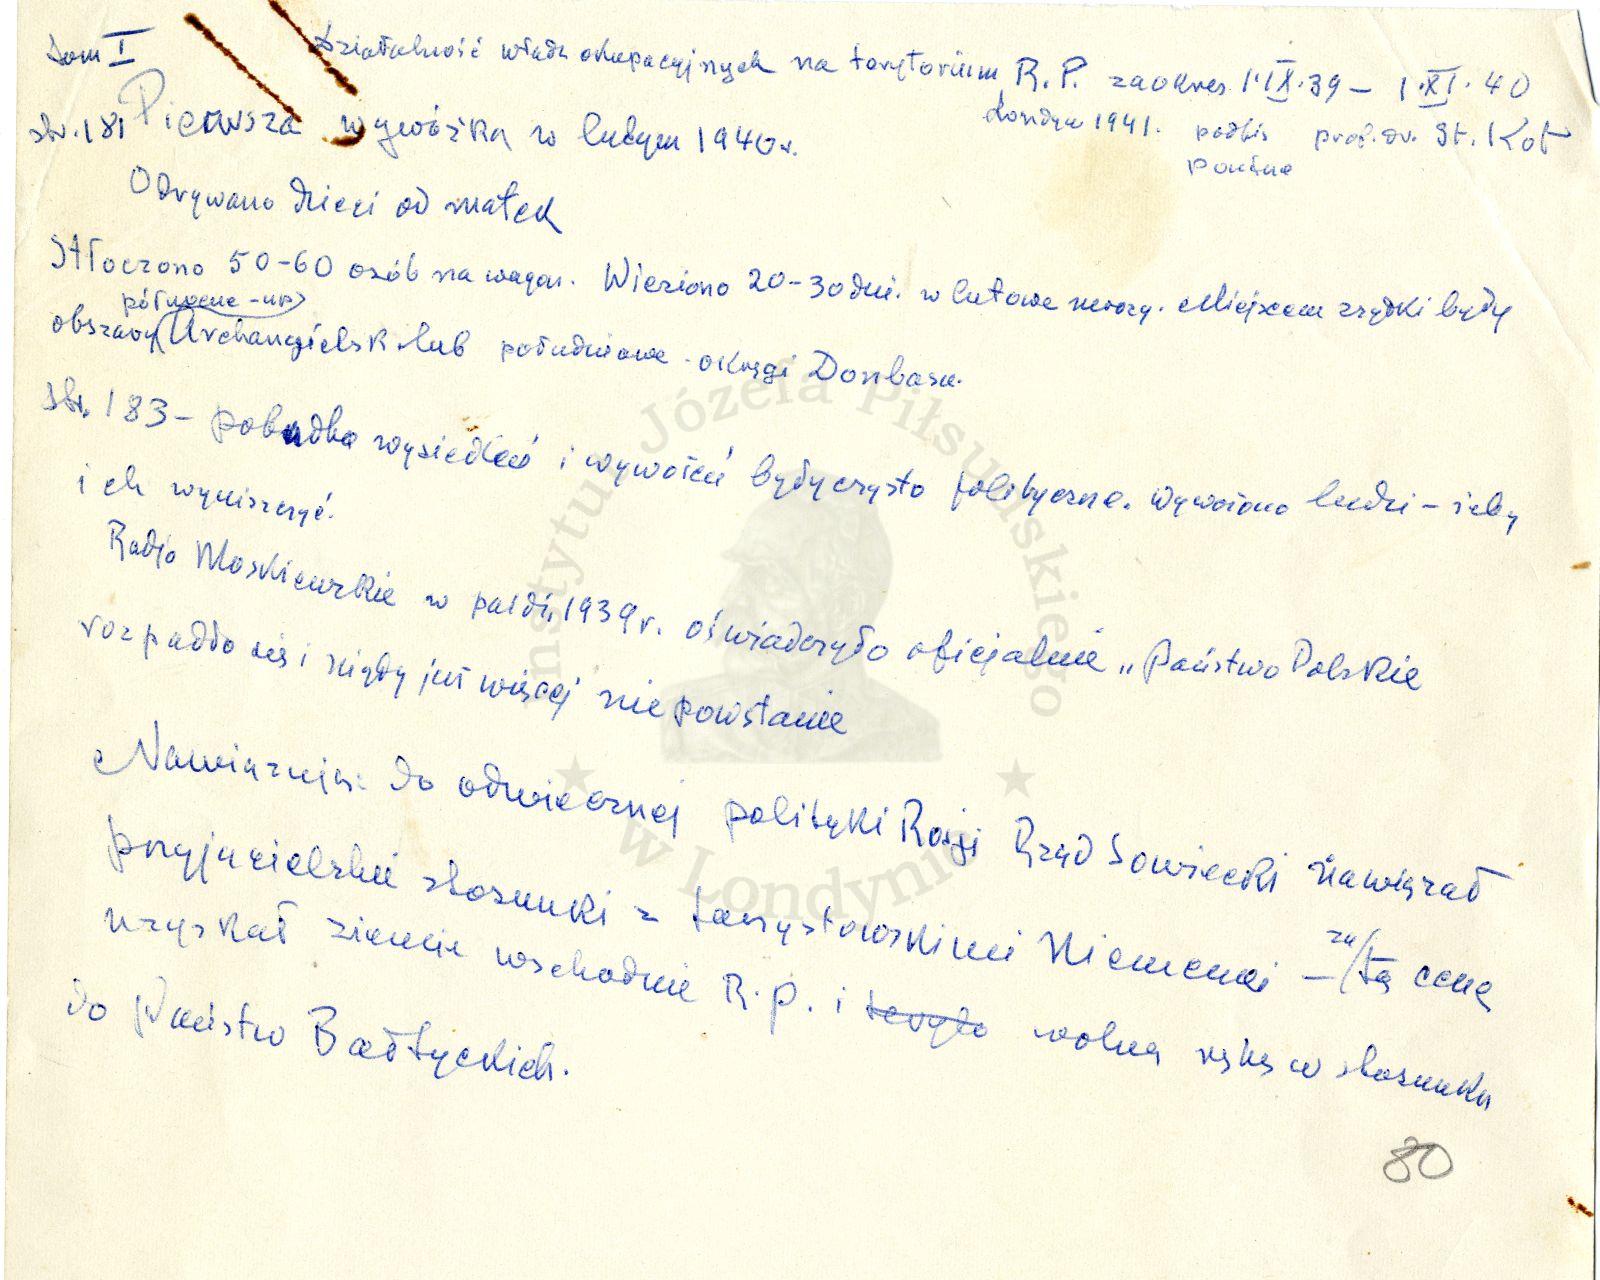 tom I Działalność władz okupacyjnych na terytorium R.P. za okres 1.IX.39 – 1.XI.40
Londyn 1941. podpis prof. dr. St. Kot
poufne
str. 181 Pierwsza wywózka w lutym 1940r.
Odrywano dzieci od matek
Stłoczono 50-60 osób na wagon. Wieziono 20-30 dni. w lutowe mrozy. Miejscem zsyłki były
północne -
obszary Archangielsk lub południowe - okręgi Donbasu.
str. 183 – pobudka wysiedleń i wywożeń były czysto polityczne. Wywożono ludzi – żeby
ich wyniszczyć.
Radjo Moskiewskie w paźdź. 1939r. oświadczyło oficjalnie „Państwo Polskie
rozpadło się i nigdy już więcej nie powstanie
Nawiązując do odwiecznej polityki Rosji Rząd Sowiecki nawiązał
przyjacielskie stosunki z faszystowskimi Niemcami – za/tę cenę
uzyskał ziemie wschodnie R.P. i wolną rękę w stosunku
do Państw Bałtyckich.
80
Instytut Józefa Piłsudskiego
w Londynie